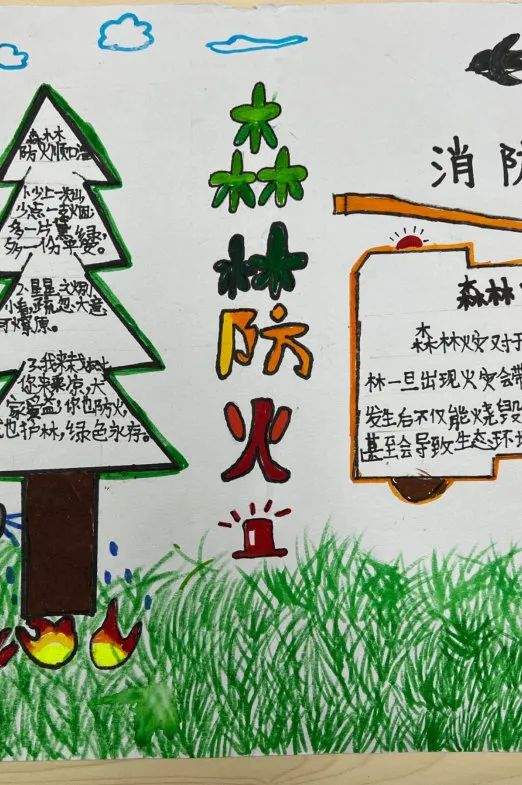 森林
防火顺口溜
1.少上一次山,
少点一支烟,
多一片葱绿,
多一份平安。
2.星星之火别
小看,疏忽大意
可燎原。
3.我来栽树
你来乘凉,大
家受益;你也防火,
也护林,绿色永存。
森
林
防
火
消防
森林
森林火灾对于
林一旦出现火灾会带
发生后不仅能烧毁
甚至会导致生态环境